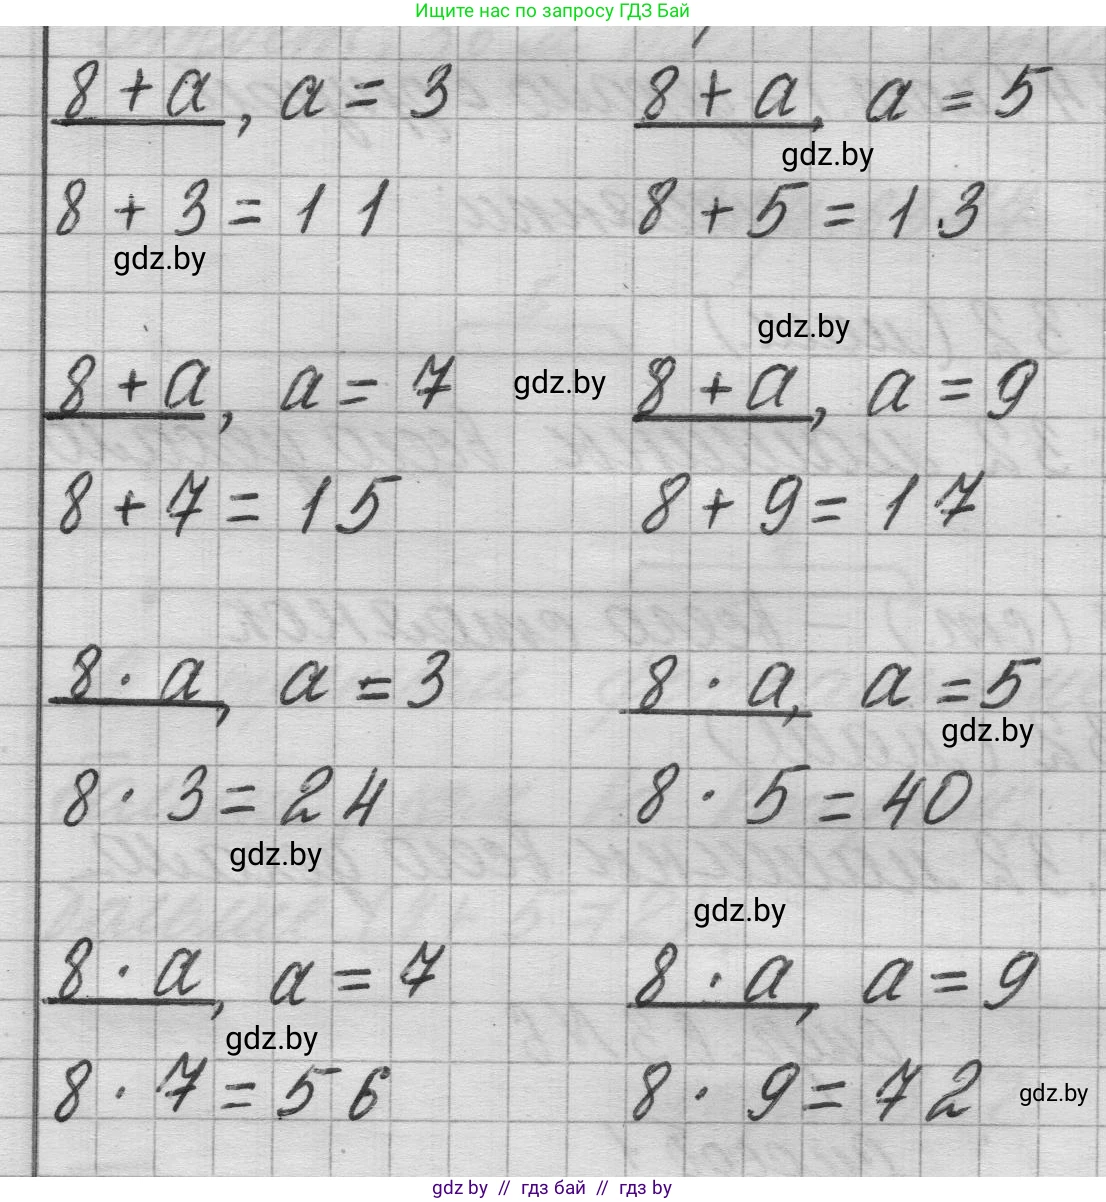 Ищите нас по запросу ГДЗ Бай
8 + a, a = 3 8 + a, a = 5
gdz.by
8 + 3 = 11 8 + 5 = 13
gdz.by
gdz.by
8 + a, a = 7 gdz.by 8 + a, a = 9
8 + 7 = 15 8 + 9 = 17
8 · a, a = 3 8 · a, a = 5
gdz.by
8 · 3 = 24 8 · 5 = 40
gdz.by
gdz.by
8 · a, a = 7 8 · a, a = 9
gdz.by
8 · 7 = 56 8 · 9 = 72 gdz.by
gdz by // гдз бай // гдз by